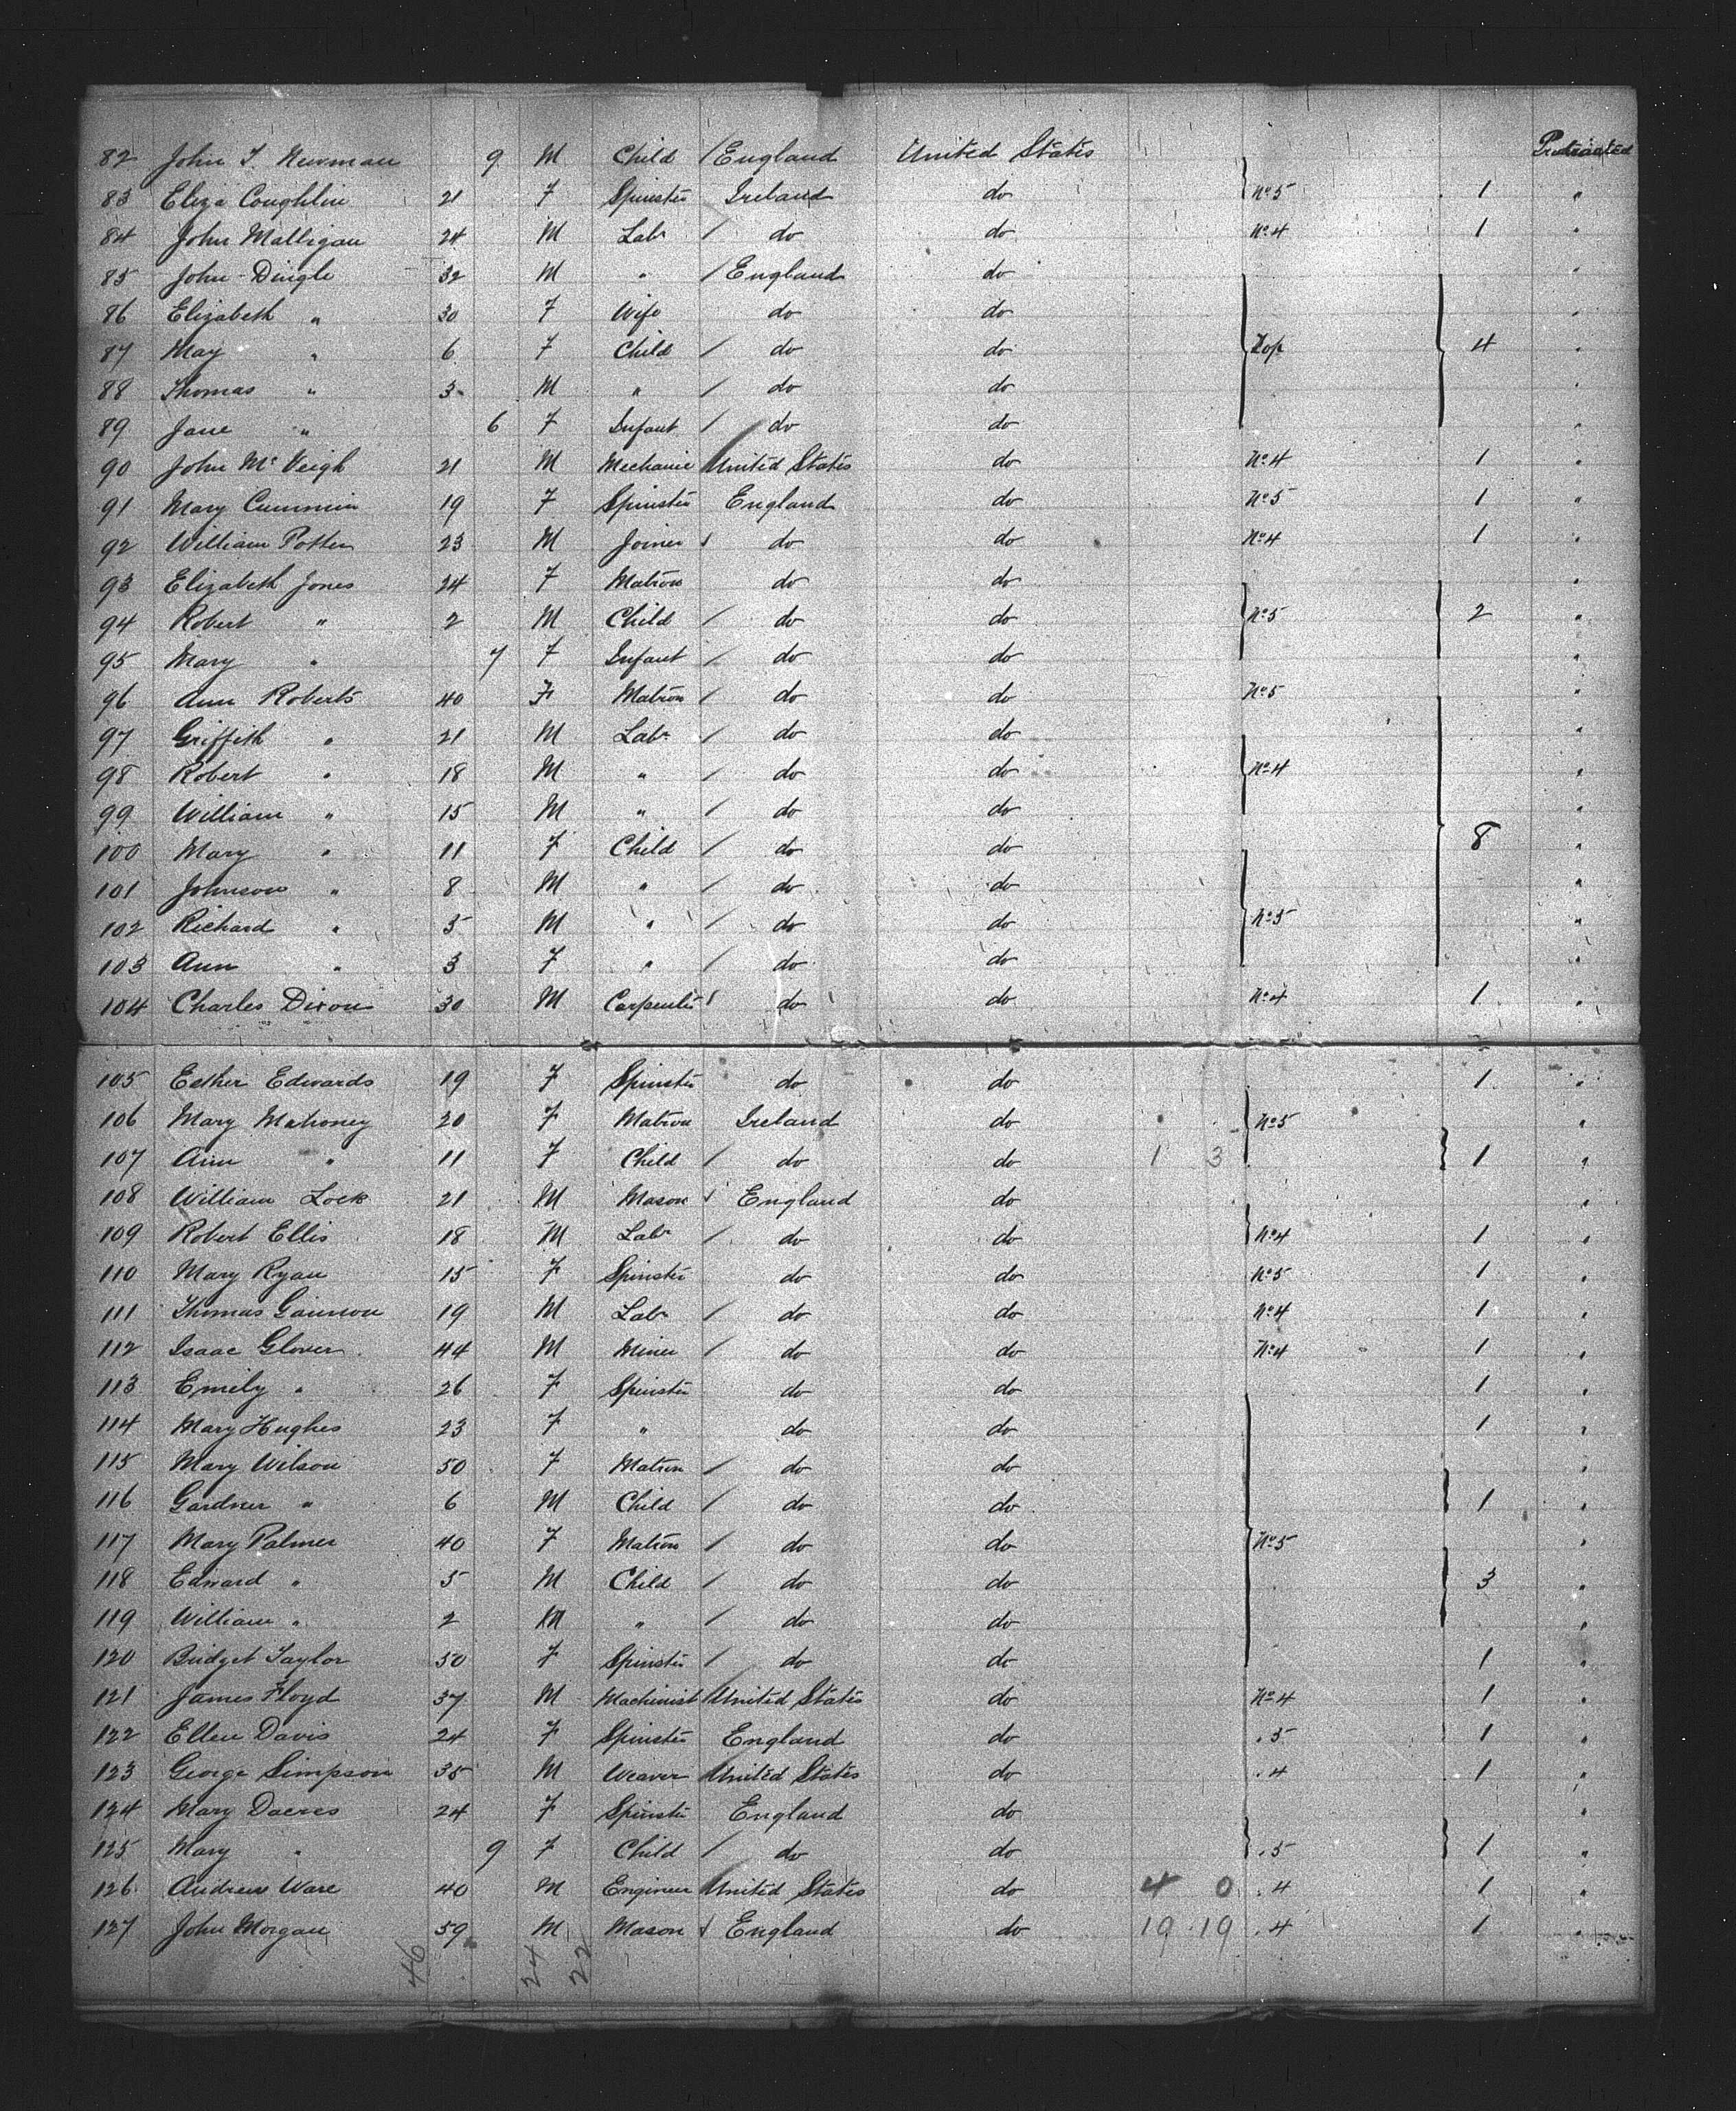 82 John T. Newman 9 M Child / England United States Protracted
83 Eliza Coughlin 21 F Spinster Ireland do No 5 1 "
84 John Malligan 24 M Labr / do do No 4 1 "
85 John Dingle 32 M " / England do "
86 Elizabeth " 30 F Wife do do "
87 May " 6 F Child / do do Top 4 "
88 Thomas " 3 M " / do do "
89 Jane " 6 F Infant / do do "
90 John McVeigh 21 M Mechanic / United States do No 4 1 "
91 Mary Cummin 19 F Spinster England do No 5 1 "
92 William Potter 23 M Joiner do do No 4 1 "
93 Elizabeth Jones 24 F Matron do do "
94 Robert " 2 M Child / do do No 5 2 "
95 Mary " 7 F Infant / do do "
96 Ann Roberts 40 F Matron / do do No 5 "
97 Griffith " 21 M Labr / do do "
98 Robert " 18 M " / do do No 4 "
99 William " 15 M " / do do "
100 Mary " 11 F Child / do do 8 "
101 Johnson " 8 M " / do do "
102 Richard " 5 M " / do do No 5 "
103 Ann " 3 F " / do do "
104 Charles Dixon 30 M Carpenter do do No 4 1 "
105 Esther Edwards 19 F Spinster do do 1 "
106 Mary Mahoney 20 F Matron Ireland do No 5 "
107 Ann " 11 F Child / do do 1 3 1 "
108 William Lock 21 M Mason England do "
109 Robert Ellis 18 M Labr / do do No 4 1 "
110 Mary Ryan 15 F Spinster do do No 5 1 "
111 Thomas Gannon 19 M Labr / do do No 4 1 "
112 Isaac Glover 44 M Miner / do do No 4 1 "
113 Emily " 26 F Spinster do do 1 "
114 Mary Hughes 23 F " do do 1 "
115 Mary Wilson 50 F Matron / do do "
116 Gardner " 6 M Child / do do 1 "
117 Mary Palmer 40 F Matron / do do No 5 "
118 Edward " 5 M Child / do do 3 "
119 William " 2 M " / do do "
120 Bridget Taylor 50 F Spinster / do do 1 "
121 James Floyd 37 M Machinist / United States do No 4 1 "
122 Ellen Davis 24 F Spinster England do " 5 1 "
123 George Simpson 35 M Weaver / United States do " 4 1 "
124 Mary Dacres 24 F Spinster England do "
125 Mary " 9 F Child / do do " 5 1 "
126 Andrew Ware 40 M Engineer / United States do 4 0 " 4 1 "
127 John Morgan 59 M Mason England do 19 19 " 4 1 "
46 24 22